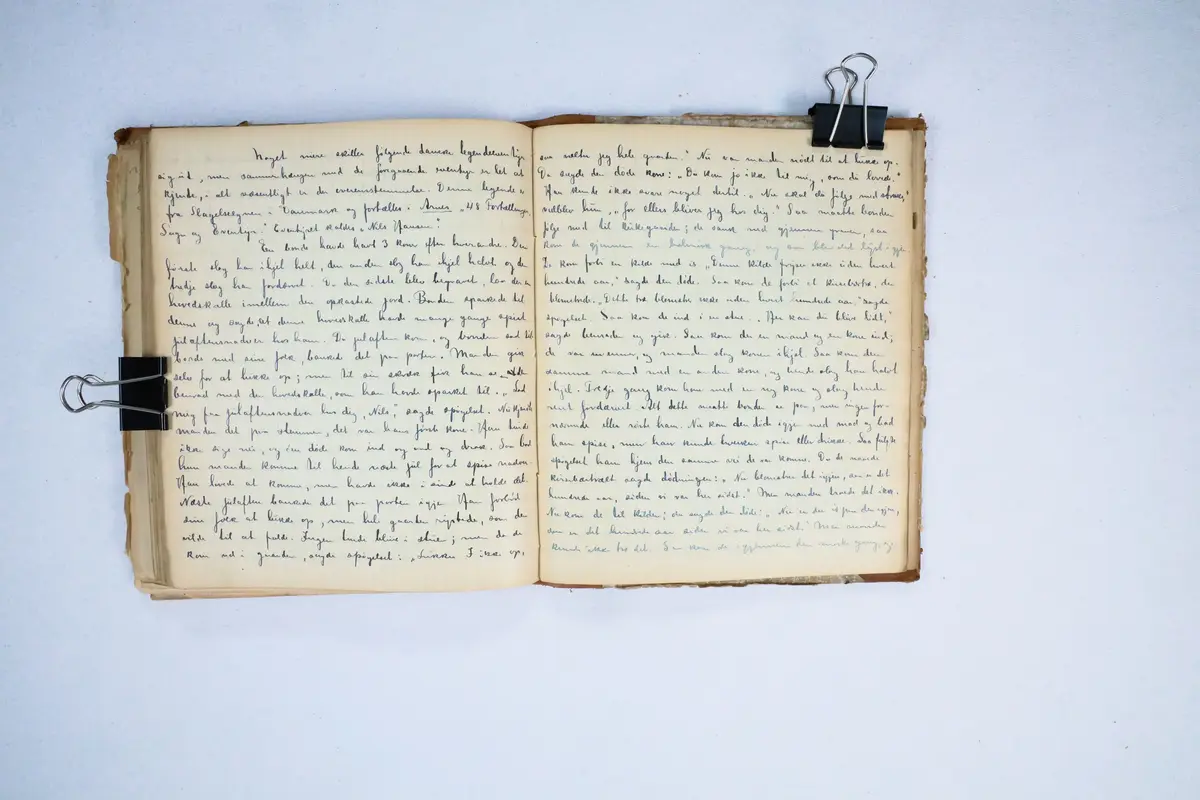 Noget mere skiller følgende danske legendeeventyr
sig ud, men sammenhængen med de foregaaende eventyr er let at
kjende, - alt væsentligt er der overensstemmelse. Denne legende er
fra Slagelseegnen i Danmark og fortælles i Arnes „48 Fortællinger,
Sagn og Eventyr." Eventyret kaldes „Nils Hansen":
En bonde havde havt 3 koner efter hverandre. Den
første slog han ihjel helt, den anden slog han ihjel halvt og den
tredje slog han fordærvet. Da den sidste blev begravet, laa der en
hovedskalle imellem den opkastede jord. Bonden sparkede til
denne og sagde, at denne hovedskalle havde mange gange spist
juleaftensnadver hos ham. Da juleaften kom, og bonden sad til
bords med sine folk, bankede det paa porten. Manden gik
selv for at lukke op; men til sin skræk fik han se
benrad med den hovedskalle, som han havde sparket til. „Lad
mig faa juleaftensnadver hos dig, Nils," sagde spøgelset. Nu kjendte
manden det paa stemmen, det var hans første kone. Han turde
ikke sige nei, og den døde kom ind og aad og drak. Saa bad
hun manden komme til hende næste jul for at spise nadver.
Han lovede at komme, men havde ikke i sinde at holde det.
Næste juleaften bankede det paa porten igjen. Han forbød
sine folk at lukke op, men hele gaarden rystede, som den
vilde til at falde. Ingen turde blive i stuen; men da de
kom ud i gaarden, sagde spøgelset: „Lukker I ikke op,
saa vælter jeg hele gaarden." Nu var manden nødt til at lukke op.
Da sagde den døde kone: „Du kom jo ikke til mig, som du lovede."
Han kunde ikke svare noget dertil. „Nu skal du følge med
vedblev hun, „for ellers bliver jeg hos dig." Saa maatte bonden
følge med til kirkegaarden; de sank ned gjennem graven, saa
kom de gjennem en bælmørk gang, og saa blev det lyst igjen.
De kom forbi en kilde med is. „Denne kilde fryser ikke uden hvert
hundrede aar," sagde den døde. Saa kom de forbi et kirsebærtræ, der
blomstrede. „Dette træ blomstrer ikke uden hvert hundrede aar," sagde
spøgelset. Saa kom de ind i en stue. „Her kan du blive lidt,"
sagde benraden og gik. Saa kom der en mand og en kone ind;
de var uenner, og manden slog konen ihjel. Saa kom den
samme mand med en anden kone, og hende slog han halvt
ihjel. Tredje gang kom han med en ny kone og slog hende
rent fordærvet. Alt dette maatte bonden se paa; men ingen for-
nærmede eller rørte ham. Nu kom den døde igjen med mad og bad
ham spise, men han kunde hverken spise eller drikke. Saa fulgte
spøgelset ham hjem den samme vei de var komne. Da de naaede
kirsebærtræet sagde dødningen: „Nu blomstrer det igjen, saa er det
hundrede aar, siden vi var her sidst." Men manden troede det ikke.
Nu kom de til kilden; da sagde den døde: „Nu er der is paa den igjen,
saa er det hundrede aar siden vi var her sidst." Men manden
kunde ikke tro det. Saa kom de igjennem den mørke gang, og